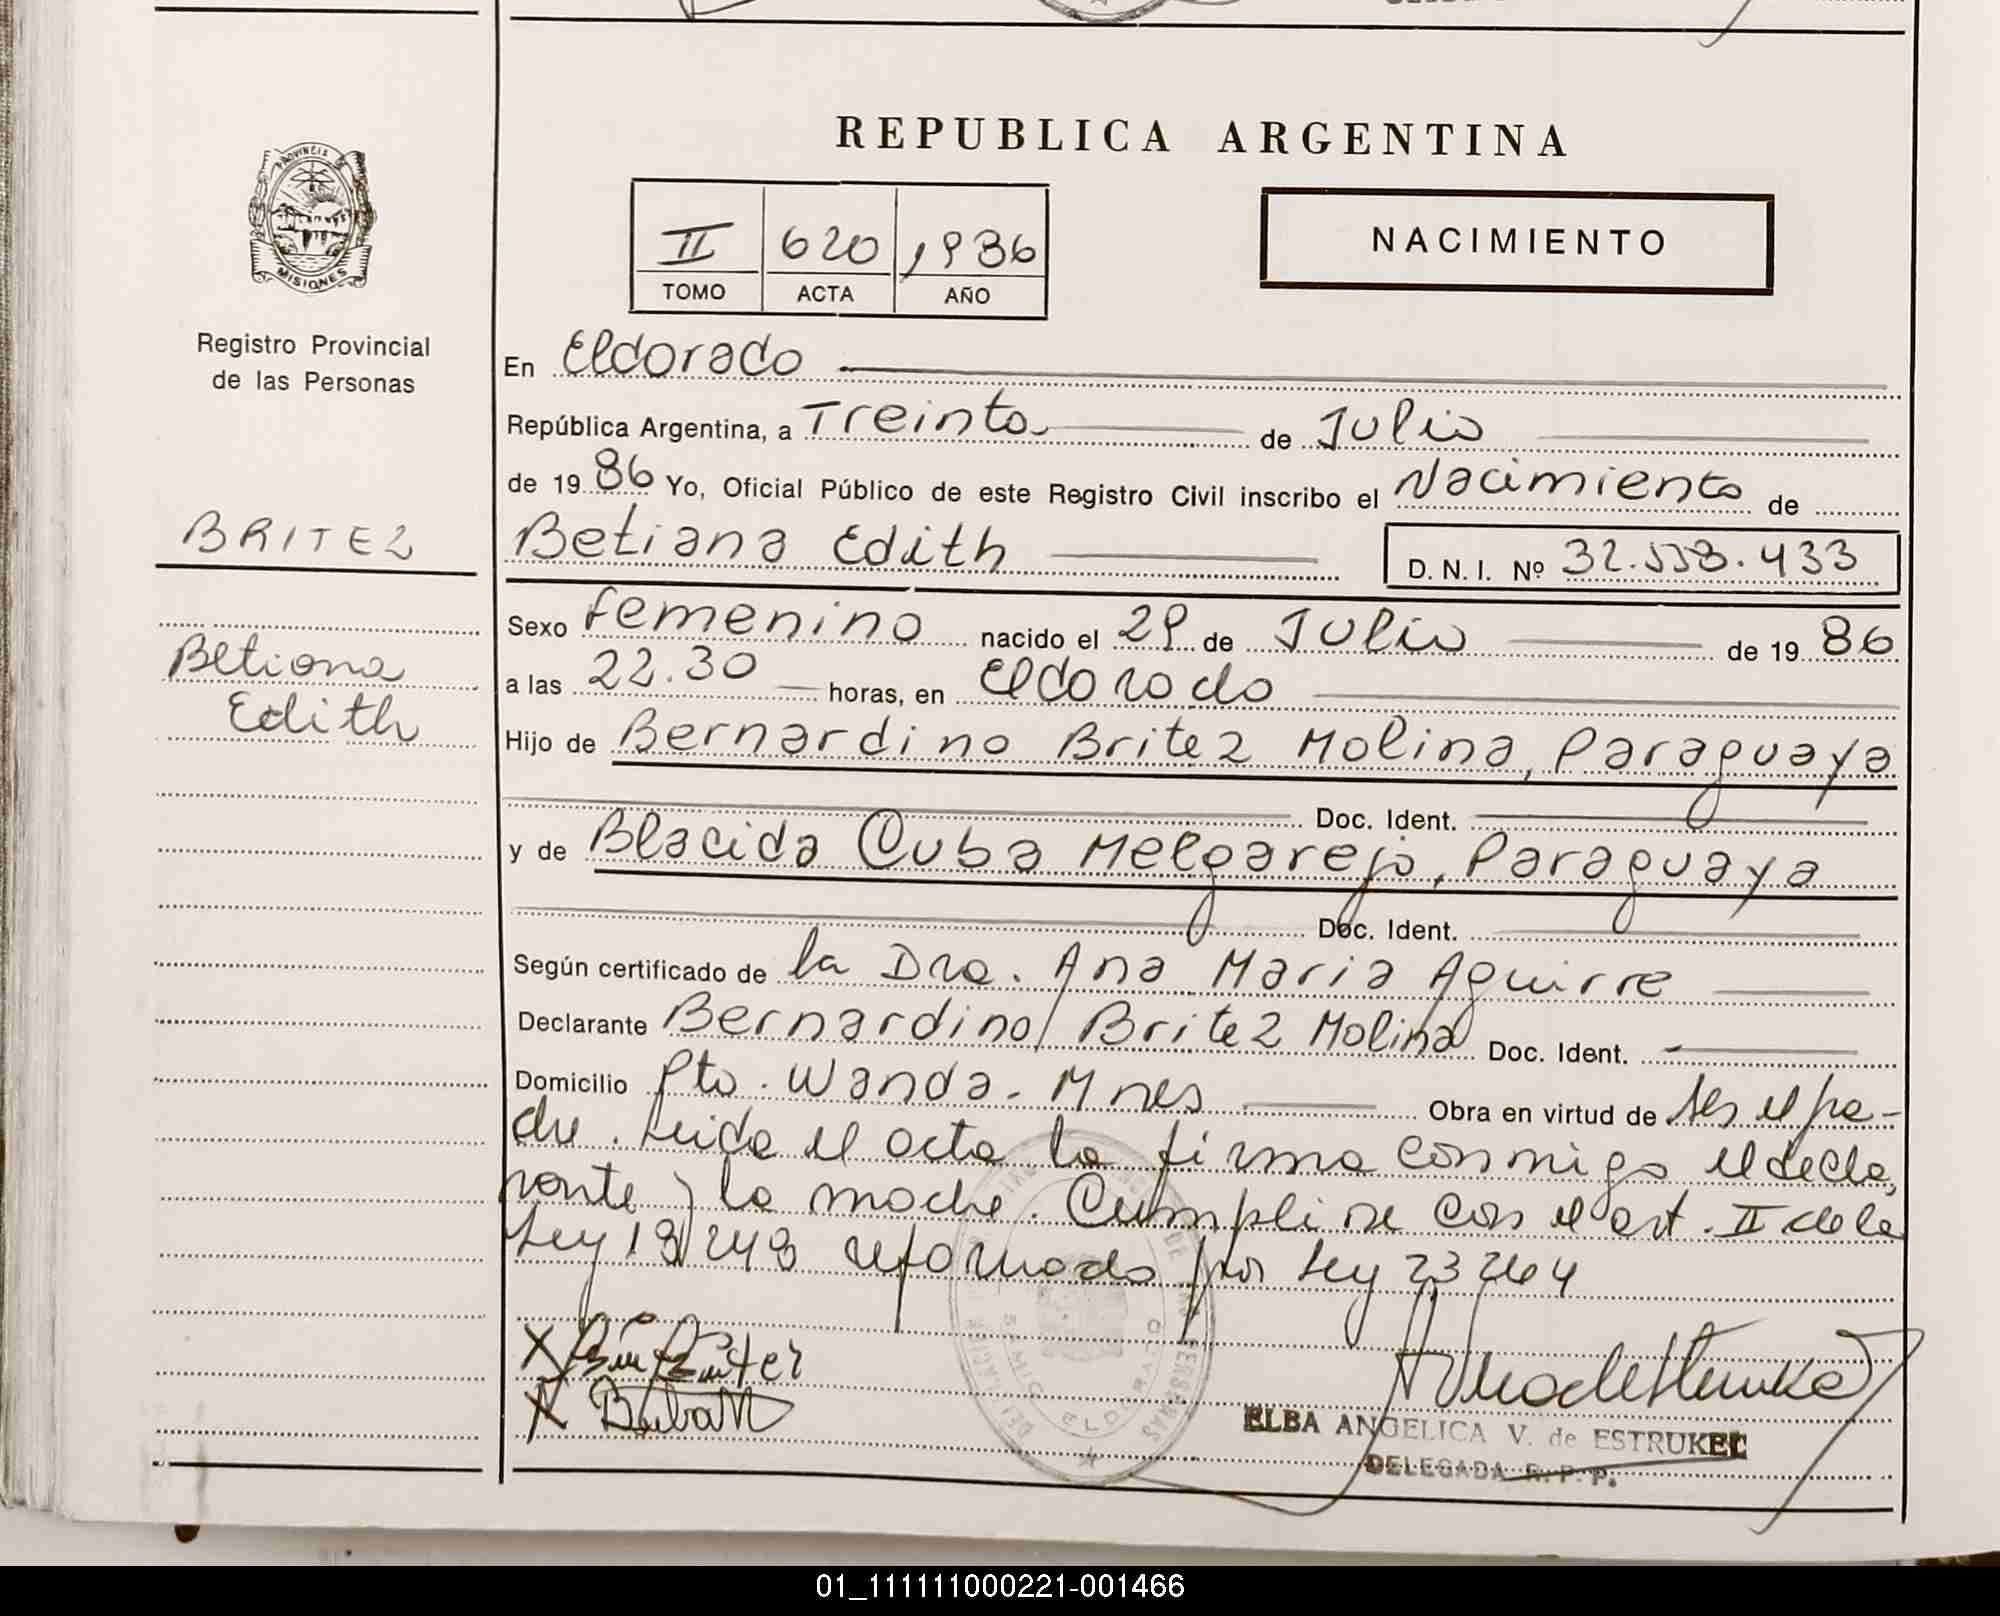 REPUBLICA ARGENTINA
PROVINCIA DE
MISIONES
II 620 1986
TOMO ACTA AÑO
NACIMIENTO
Registro Provincial
de las Personas
BRITEZ
Betiana
Edith
En Eldorado
República Argentina, a Treinta de Julio
de 1986 Yo, Oficial Público de este Registro Civil inscribo el Nacimiento de
Betiana Edith D. N. I. Nº 32.558.433
Sexo Femenino nacido el 29 de Julio de 1986
a las 22.30 horas, en Eldorado
Hijo de Bernardino Britez Molina, Paraguaya
Doc. Ident.
y de Blacida Cuba Melgarejo, Paraguaya
Doc. Ident.
Según certificado de la Dra. Ana Maria Aguirre
Declarante Bernardino Britez Molina Doc. Ident.
Domicilio Pto. Wanda - Mnes Obra en virtud de ser el pa-
dre. Leida el acta la firma conmigo el decla,
rante y la madre. Cumplise con el art. II de la
Ley 18248 reformado por Ley 23264
ELBA ANGELICA V. de ESTRUKEL
DELEGADA R. P. P.
01_111111000221-001466